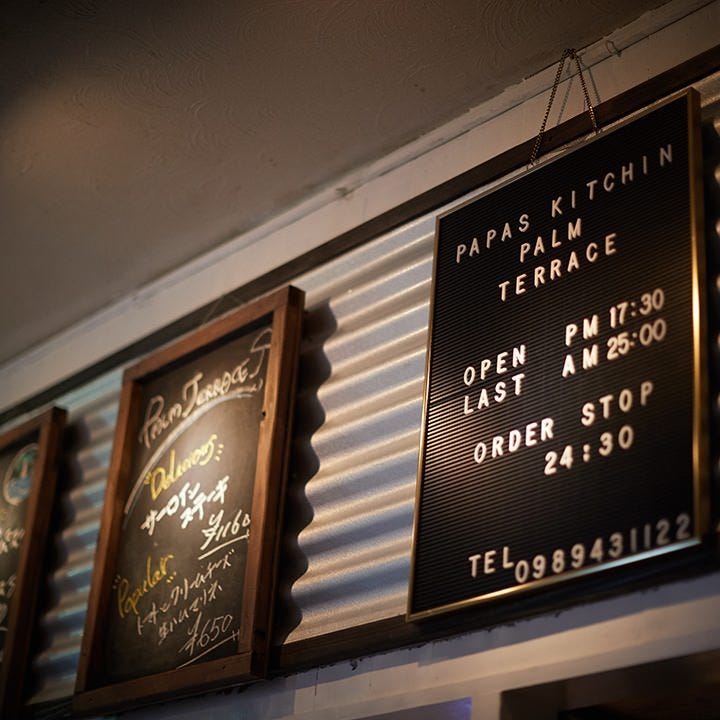 PALM TERRACE'S
"Delicious"
サーロイン
ステーキ
¥1160
"Popular"
¥650
PAPAS KITCHIN
PALM
TERRACE
OPEN PM 17:30
LAST AM 25:00
ORDER STOP
24:30
TEL 0989431122